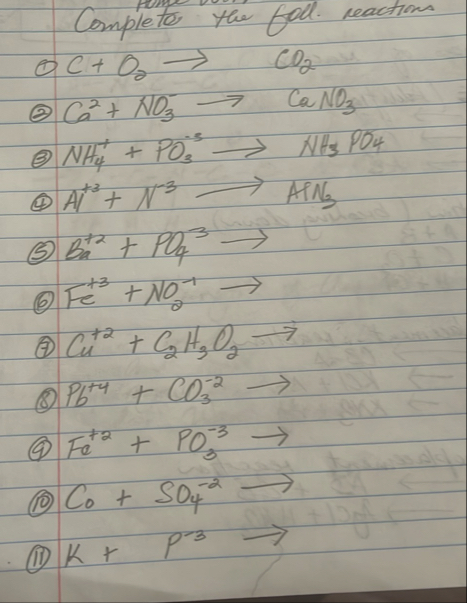 Home Work
Complete the foll. reactions
① C + O₂ → CO₂
② Ca² + NO₃⁻ → CaNO₃
③ NH₄⁺ + PO₃⁻³ → NH₃PO₄
④ Al⁺³ + N⁻³ → AlN₃
⑤ Ba⁺² + PO₄⁻³ →
⑥ Fe⁺³ + NO₂⁻¹ →
⑦ Cu⁺² + C₂H₃O₂ →
⑧ Pb⁺⁴ + CO₃⁻² →
⑨ Fe⁺² + PO₃⁻³ →
⑩ Co + SO₄⁻² →
⑪ K + P⁻³ →